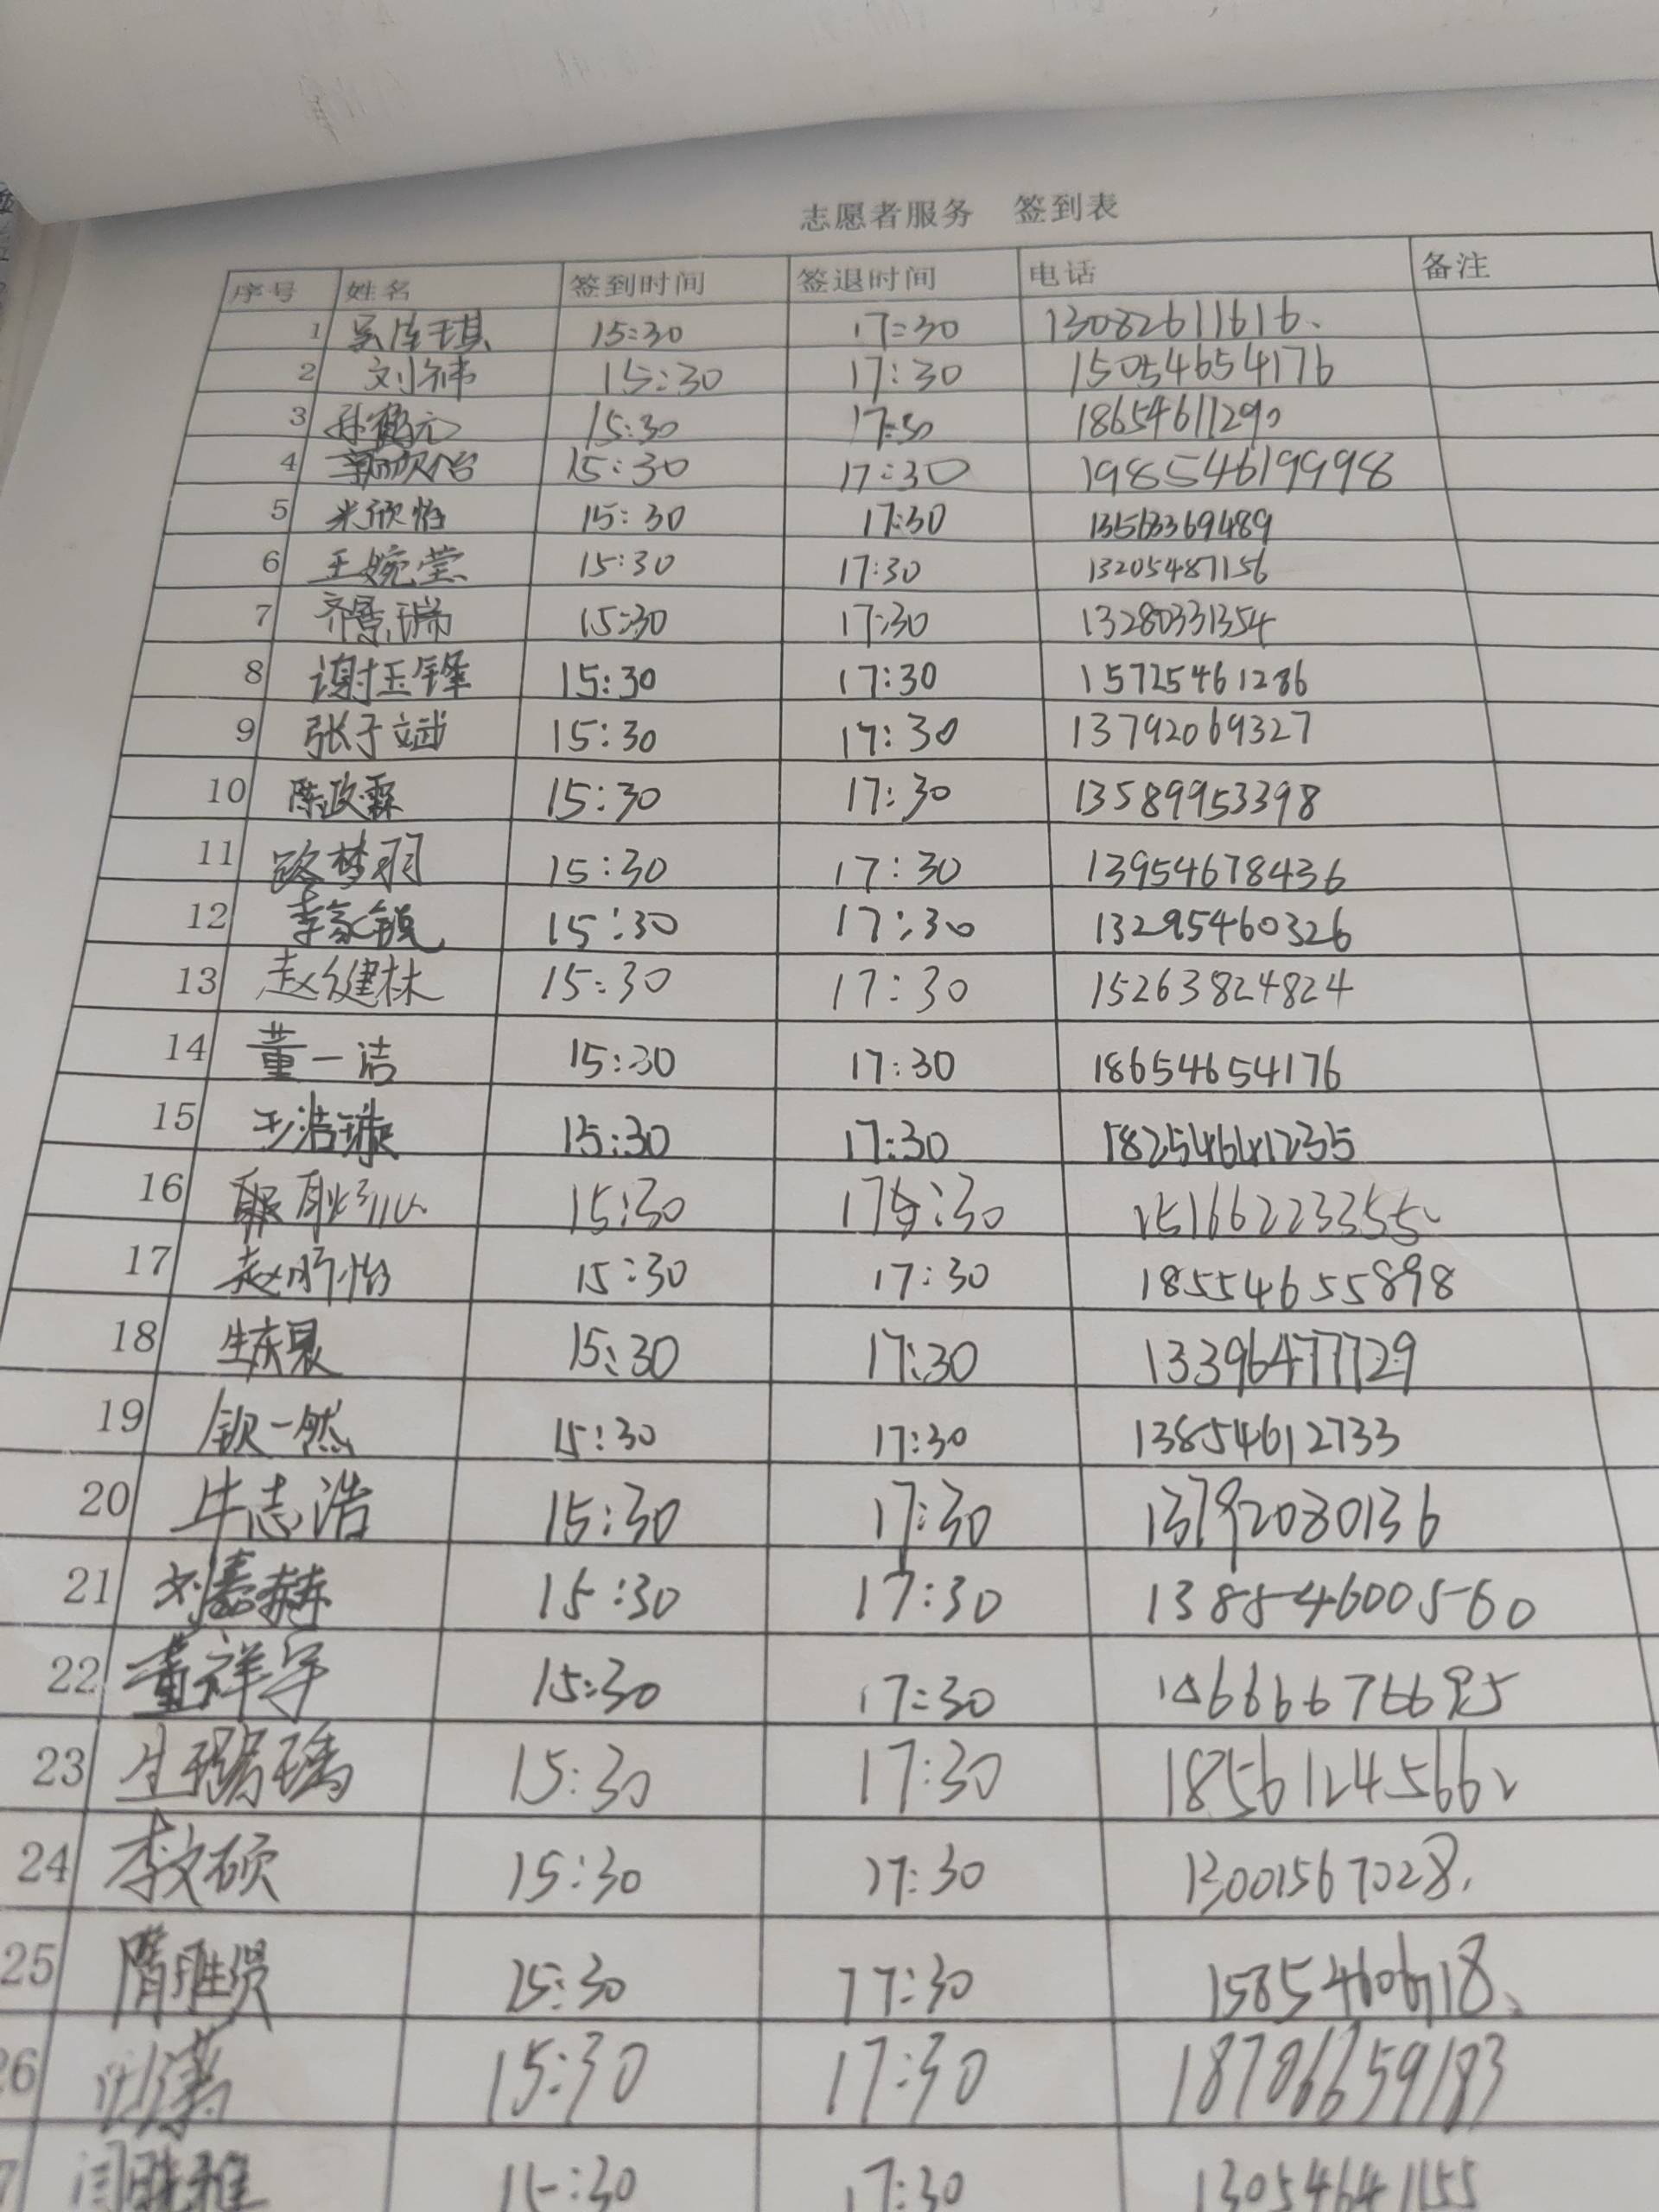 志愿者服务 签到表
序号 姓名 签到时间 签退时间 电话 备注
1 15:30 17:30 13082611616
2 刘祎 15:30 17:30 15054654176
3 孙鹤元 15:30 17:30 18654611290
4 15:30 17:30 19854619998
5 米欣怡 15:30 17:30 13563369489
6 王婉莹 15:30 17:30 13205487156
7 15:30 17:30 13280331354
8 谢玉锋 15:30 17:30 15725461286
9 张于斌 15:30 17:30 13792069327
10 陈政霖 15:30 17:30 13589953398
11 路梦羽 15:30 17:30 13954678436
12 李家锐 15:30 17:30 13295460326
13 赵健林 15:30 17:30 15263824824
14 董一洁 15:30 17:30 18654654176
15 王浩璇 15:30 17:30 18254641235
16 15:30 15166223355
17 赵昕怡 15:30 17:30 18554655898
18 15:30 17:30 13396477729
19 钦一然 15:30 17:30 13854612733
20 牛志浩 15:30 17:30 13792080136
21 15:30 17:30 13854600560
22 董祥宇 15:30 17:30
23 15:30 17:30 18561245662
24 李文硕 15:30 17:30 13001567028
25 15:30 17:30
26 15:30 17:30 18706659183
15:30 17:30 13054641155